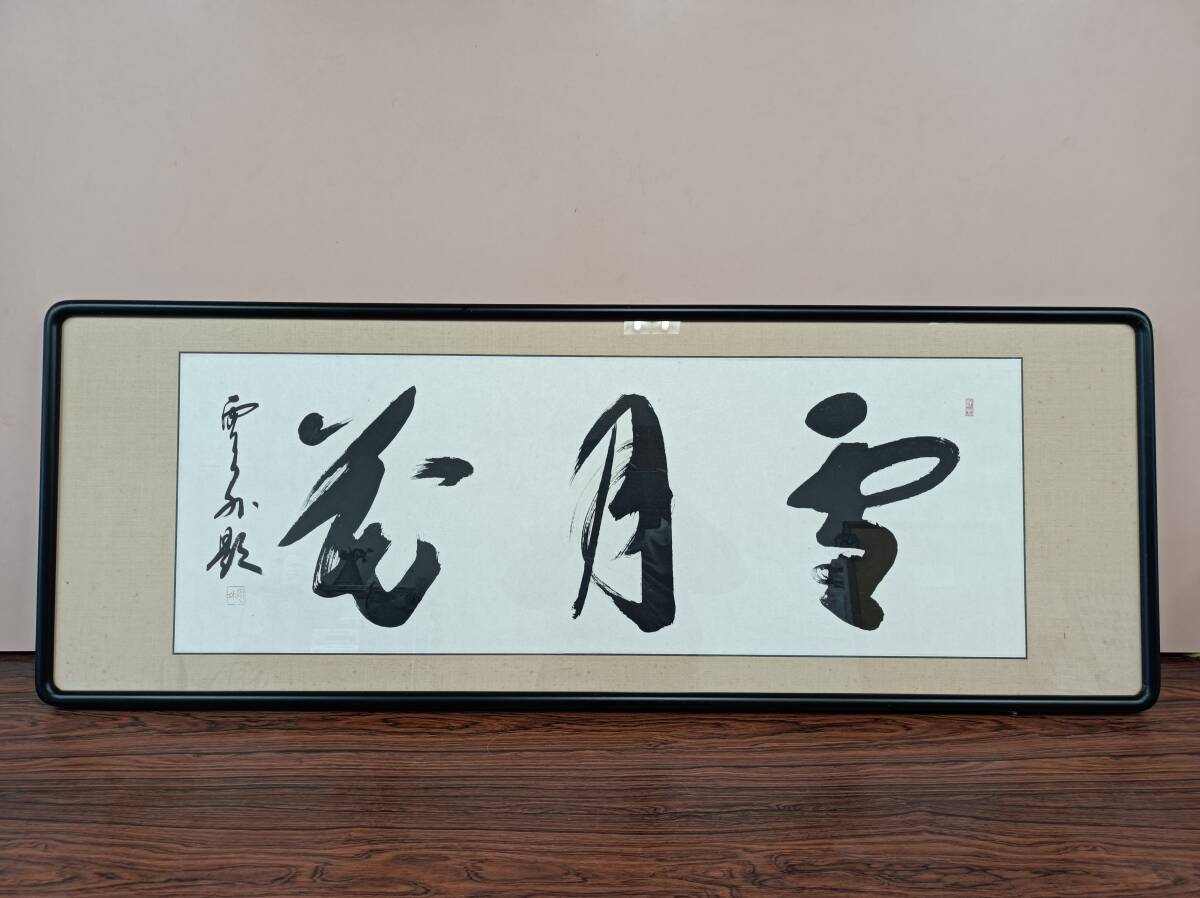 雪月花
雲外題